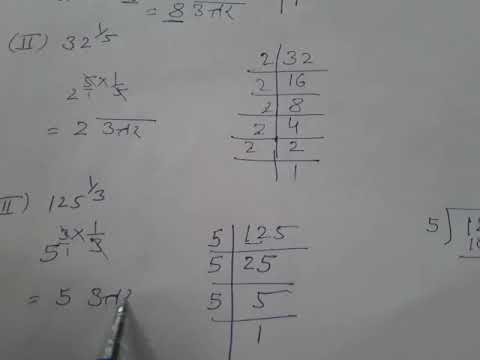 = 8 उत्तर
(II) 32^1/5
2^5/1×1/5
= 2 उत्तर
2 | 32
2 | 16
2 | 8
2 | 4
2 | 2
1
II) 125^1/3
5^3/1×1/3
= 5 उत्तर
5 | 125
5 | 25
5 | 5
1
5) 12